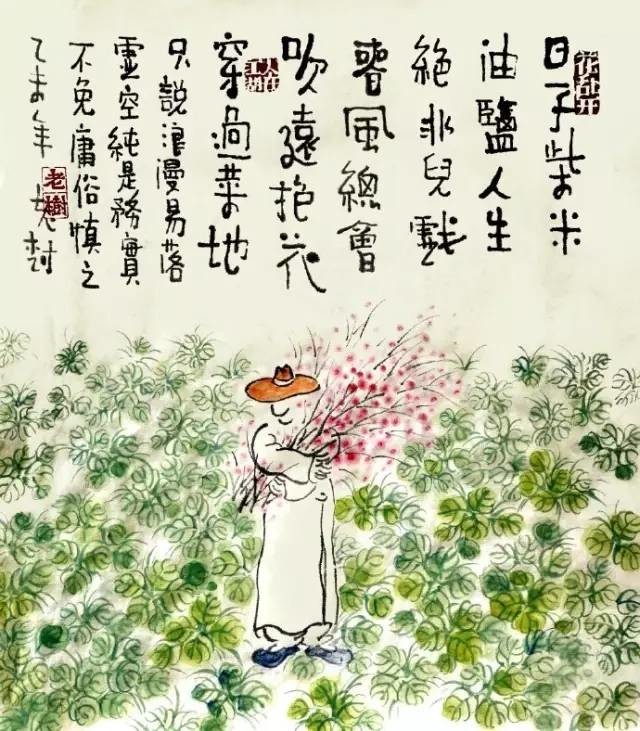 花乱开
日子柴米
油鹽人生
絕非兒戲
春風總會
吹遠抱花
人在江湖
穿過菜地
只説浪漫易落
虛空純是務實
不免庸俗慎之
乙未年老树
老樹